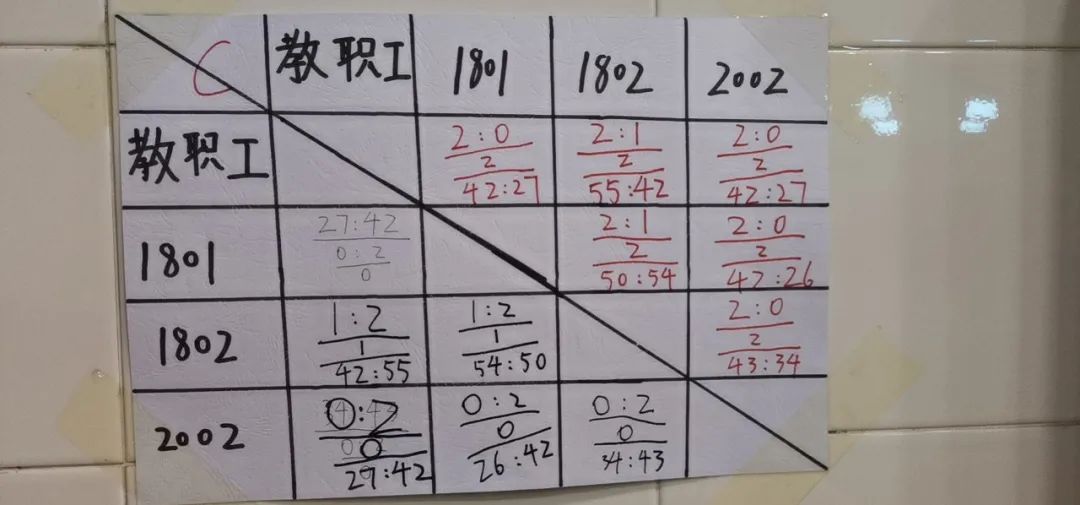 C 教职工 1801 1802 2002
教职工 2:0 2:1 2:0
2 2 2
42:27 55:42 42:27
1801 27:42 2:1 2:0
0:2 2 2
0 50:54 42:26
1802 1:2 1:2 2:0
1 1 2
42:55 54:50 43:34
2002 0:2 0:2 0:2
0 0 0
29:42 26:42 34:43